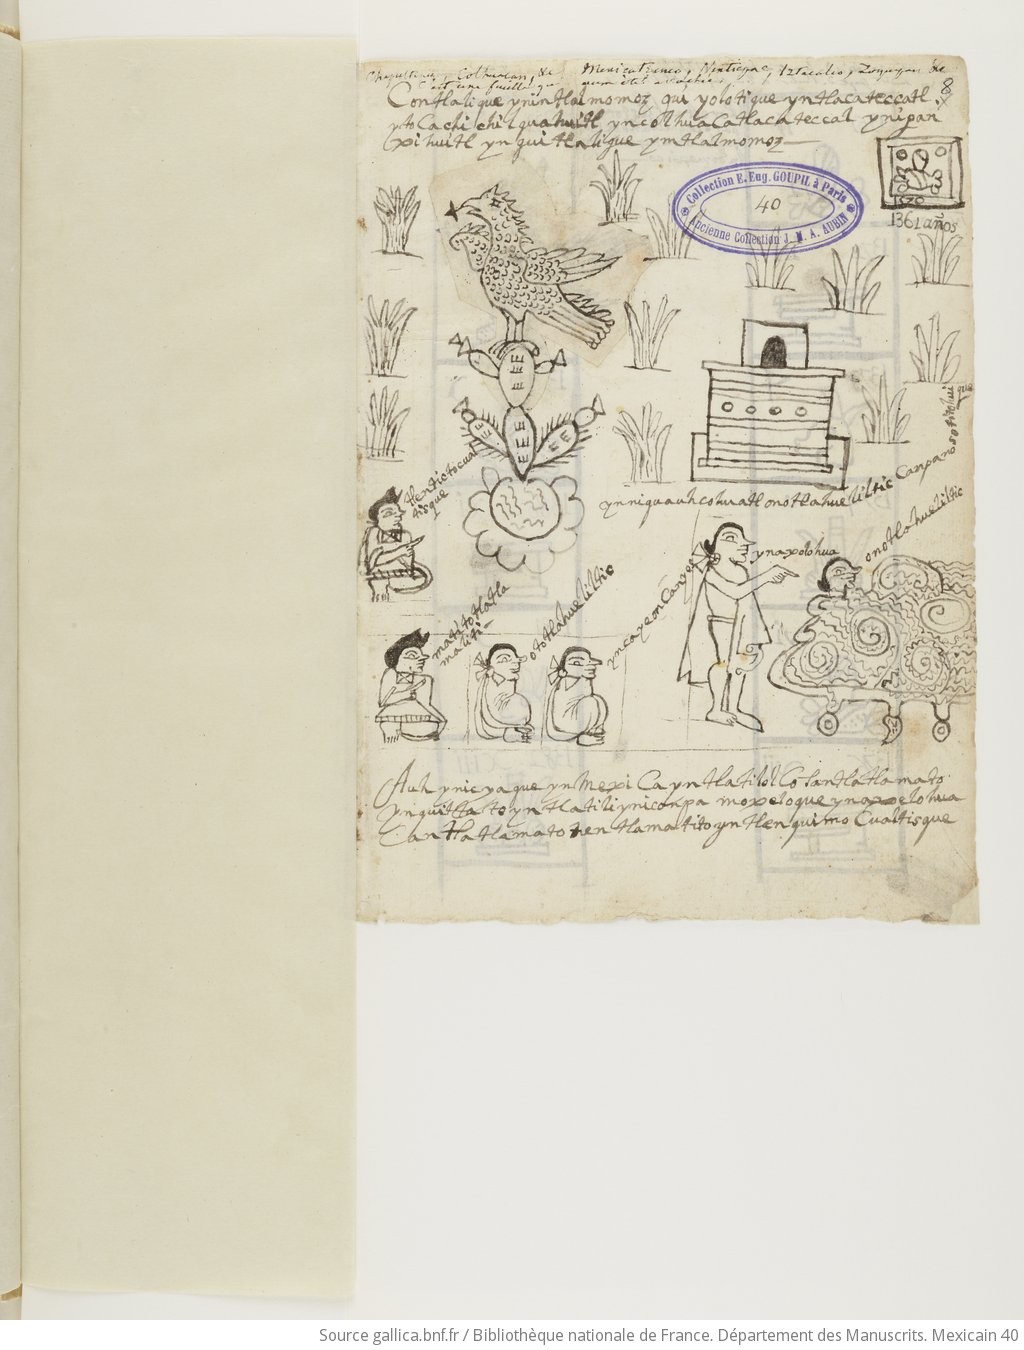 Chapultepec, Colhuacan, &c Mexicatzinco, Nextiquac, Iztacalco, Zoquipan &c
c'est une feuille qui
8
Contlalique ynintlalmomoz qui yolotique yntlacateccatl
ytoCa chichilquahuitl yncolhuacatlacateccal ynipan
Expihuitl yn quitlalique yntlalmomoz
Collection E. Eug. GOUPIL à Paris
40
Ancienne Collection J. M. A. AUBIN
1361 años
tlentictocual
tisque
ynniquauhcohuatl onotlahueliltic Canpanosotitohui
que
ynaxolohua
onotlahueliltic
matitotlatla
maliti
ototlahueliltic
yncayeonCanyes
Auh ynicyaque ynMexiCa yntlatilolCo Santlatlamato
ynquittato yntlatili yniconpa moxeloque ynaxelohua
Can tlatlamato tlentlamatito yntlenquimo Cualtisque
Source gallica.bnf.fr / Bibliothèque nationale de France. Département des Manuscrits. Mexicain 40